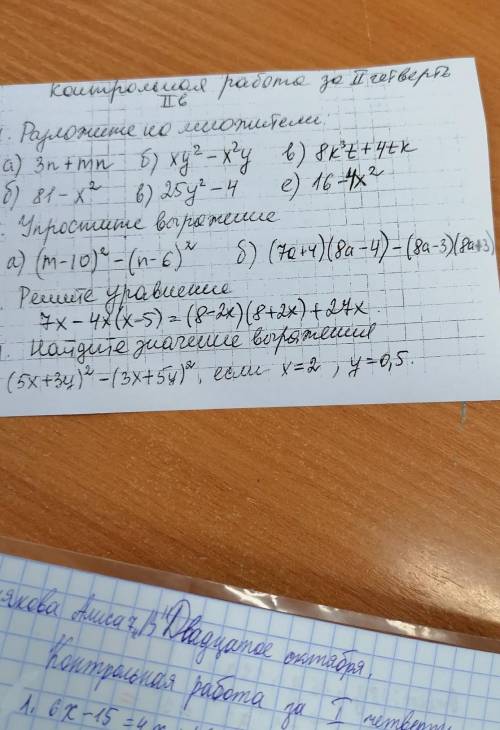 Контрольная работа за II четверть
II в
1. Разложите на множители.
а) 3n+mn б) xy² – x²y в) 8k³t+4tk
б) 81 – x² в) 25y² – 4 е) 16–4x²
. Упростите выражение
а) (m-10)² – (n-6)² б) (7a+4)(8a-4) – (8a-3)(8a+3)
. Решите уравнение
7x – 4x(x-5) = (8-2x)(8+2x) + 27x.
Найдите значение выражения
(5x+3y)² – (3x+5y)², если x=2, y=0,5.
Алиса 7"В" Двадцатое октября.
Контрольная работа за I четверть
1. 6x – 15 = 4x